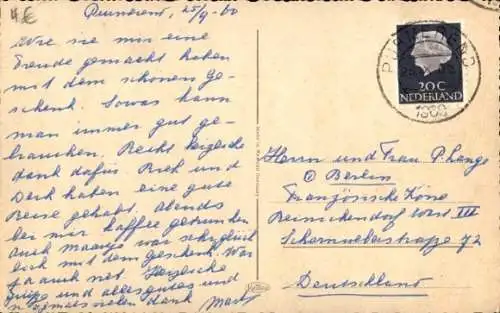 4€
Purmerend, 25/9-60
Wie sie mir eine
Freude gemacht haben
mit dem schönen Ge-
schenk. Sowas kann
man immer gut ge-
brauchen. Recht herzliche
dank dafür. Rieh und
Dick haben eine gute
Reise gehabt. Abends
bei mir kaffee getrunken
auch Maartje war sehr glück
lich mit dem geschenk. War
ja auch net. Herzliche
grüße und alles gutes und
nogmals vielen dank
PURMEREND
20 C
NEDERLAND
Herrn und Frau P. Lenge
Berlin
Französische Zone
Reinickendorf West III
Scharnweberstraße 72
Deutschland